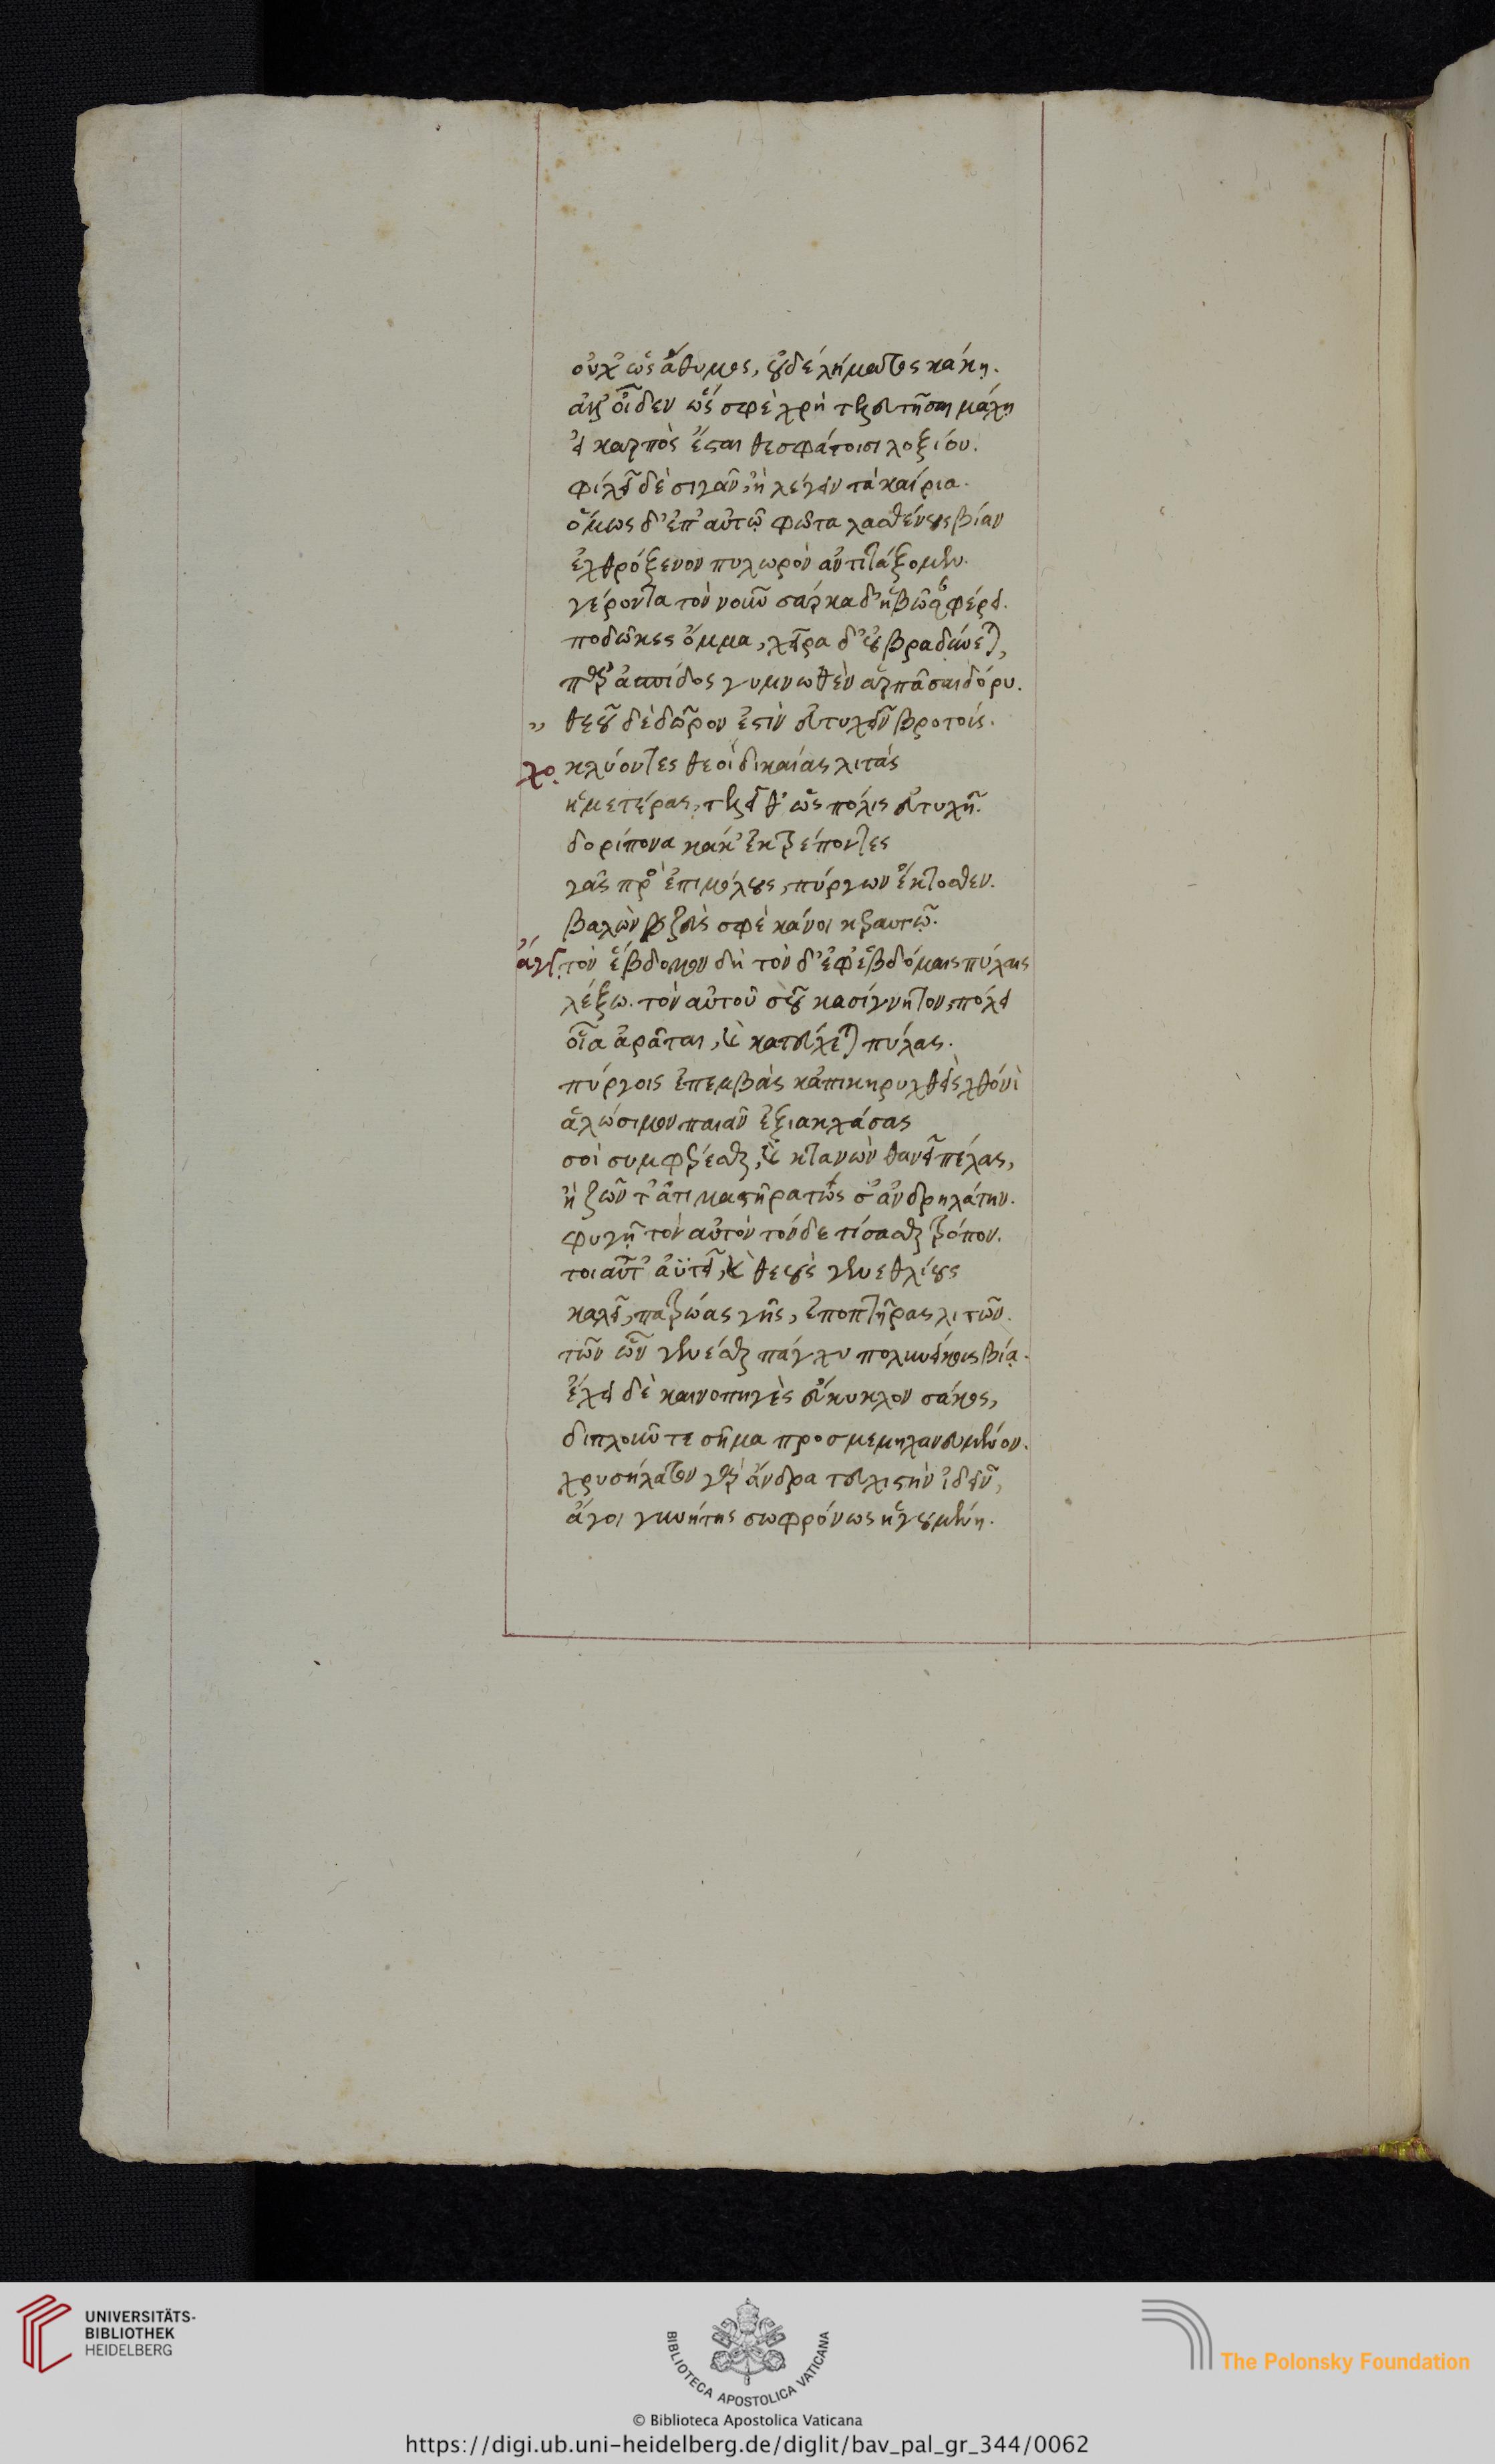 οὐχ ὡς ἄθυμος, οὐδὲ λήματος κάκη.
ἀλλ' οἶδεν ὥς σφε χρὴ τελευτῆσαι μάχῃ
εἰ καρπὸς ἔσται θεσφάτοισι λοξίου.
φιλεῖ δὲ σιγᾶν, ἢ λέγειν τὰ καίρια.
ὅμως δ' ἐπ' αὐτῷ φῶτα λασθένους βίαν
ἐχθρόξενον πυλωρὸν ἀντιτάξομεν.
γέροντα τὸν νοῦν σάρκα δ' ἡβῶσαν φέρει.
ποδῶκες ὄμμα, χεῖρα δ' οὐ βραδύνεται,
παρ' ἀσπίδος γυμνωθὲν ἁρπάσαι δόρυ.
" θεοῦ δὲ δῶρον ἐστὶν εὐτυχεῖν βροτούς.
χο. κλύοντες θεοὶ δικαίας λιτὰς
ἡμετέρας, τελεῖθ' ὡς πόλις εὐτυχῇ.
δορίπονα κάκ' ἐκτρέποντες
γᾶς πρὸς ἐπιμόλους, πύργων ἔκτοθεν.
βαλὼν ζεὺς σφε κάνοι κεραυνῷ.
ἄγγ. τὸν ἕβδομον δὴ τὸν δ' ἐφ' ἑβδόμαις πύλαις
λέξω. τὸν αὐτοῦ σοῦ κασίγνητον, πόλει
οἷα ἀρᾶται, καὶ κατεύχεται πύλας.
πύργοις ἐπεμβὰς κἀπικηρυχθεὶς χθονὶ
ἁλώσιμον παιᾶν' ἐξιακχάσας
σοὶ συμφέρεσθαι, καὶ κτανὼν θανεῖν πέλας,
ἢ ζῶντ' ἀτιμαστῆρα τὼς σ' ἀνδρηλάτην.
φυγῇ τὸν αὐτὸν τόνδε τίσασθαι τρόπον.
τοιαῦτ' ἀϋτεῖ, καὶ θεοὺς γενεθλίους
καλεῖ, πατρώας γῆς, ἐποπτῆρας λιτῶν.
τῶν ὧν γενέσθαι πάγχυ πολυνείκους βία.
ἔχει δὲ καινοπηγὲς εὔκυκλον σάκος,
διπλοῦν τε σῆμα προσμεμηχανευμένον.
χρυσήλατον γὰρ ἄνδρα τευχηστὴν ἰδεῖν,
ἄγει γυνή τις σωφρόνως ἡγουμένη.
UNIVERSITÄTS-
BIBLIOTHEK
HEIDELBERG
BIBLIOTECA APOSTOLICA VATICANA
The Polonsky Foundation
© Biblioteca Apostolica Vaticana
https://digi.ub.uni-heidelberg.de/diglit/bav_pal_gr_344/0062